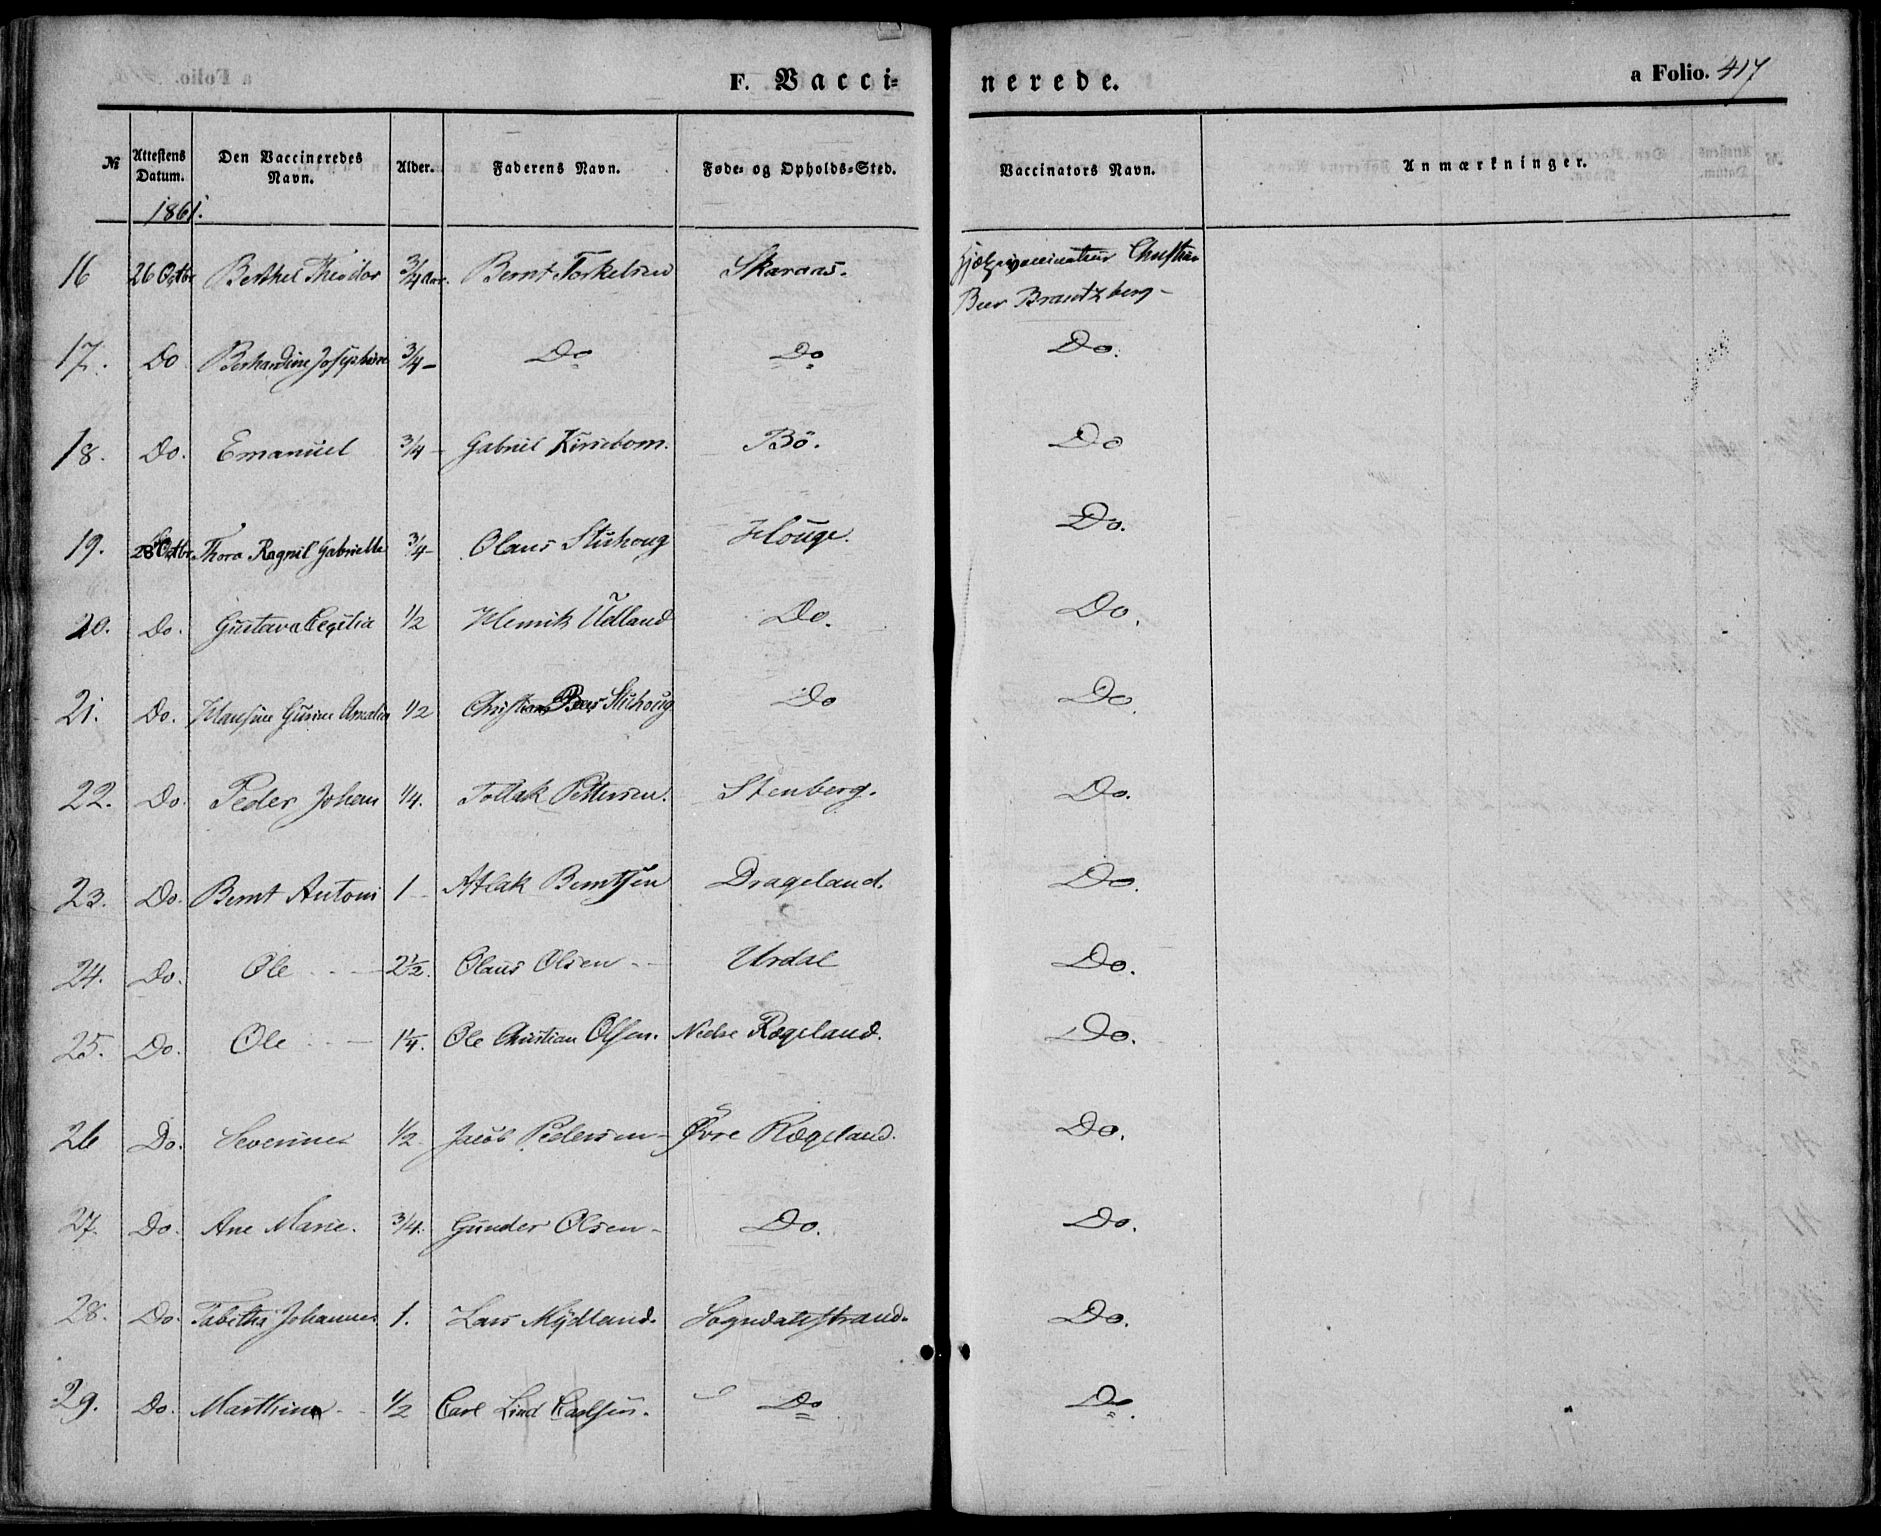 F. Vacci- nerede.
a Folio. 417
№ Attestens Datum. Den Vaccineredes Navn. Alder. Faderens Navn. Føde- og Opholds-Sted. Vaccinators Navn. Anmærkninger.
1861.
16 26 Octbr Berthel Theodor 3/4 Aar. Bernt Torkelsen Skaraas. Hjælpevaccinateur Christian
Beer Brantzberg
17. Do Berhardine Josephine 3/4 Do Do Do.
18. Do. Emanuel 3/4 Gabriel Kirsebom. Bö. Do
19. 28 Octbr Thora Ragnil Gabrielle 3/4 Olaus Stuhoug Houge. Do.
20. Do. Gustava Cecilia 1/2 Henrik Udland Do. Do.
21. Do. Hansine Gurine Amalia 1/2 Christian Beer Stuhoug Do Do.
22. Do. Peder Johan 1/4. Tollak Pettersen. Stenberg. Do.
23. Do. Bernt Antoni 1 Atlak Berntsen Drageland. Do.
24. Do. Ole 2 1/2. Olaus Olsen Urdal Do.
25. Do. Ole 1 1/4. Ole Christian Olsen. Nedre Rægeland. Do.
26 Do. Severine 1/2. Jacob Pedersen Øvre Rægeland. Do.
27. Do. Ane Marie. 3/4. Gunder Olsen Do. Do.
28. Do. Tabitha Johannes 1. Lars Mydland. Sogndalsstrand. Do.
29. Do. Marthina 1/2 Carl Lind Carlsen. Do Do.